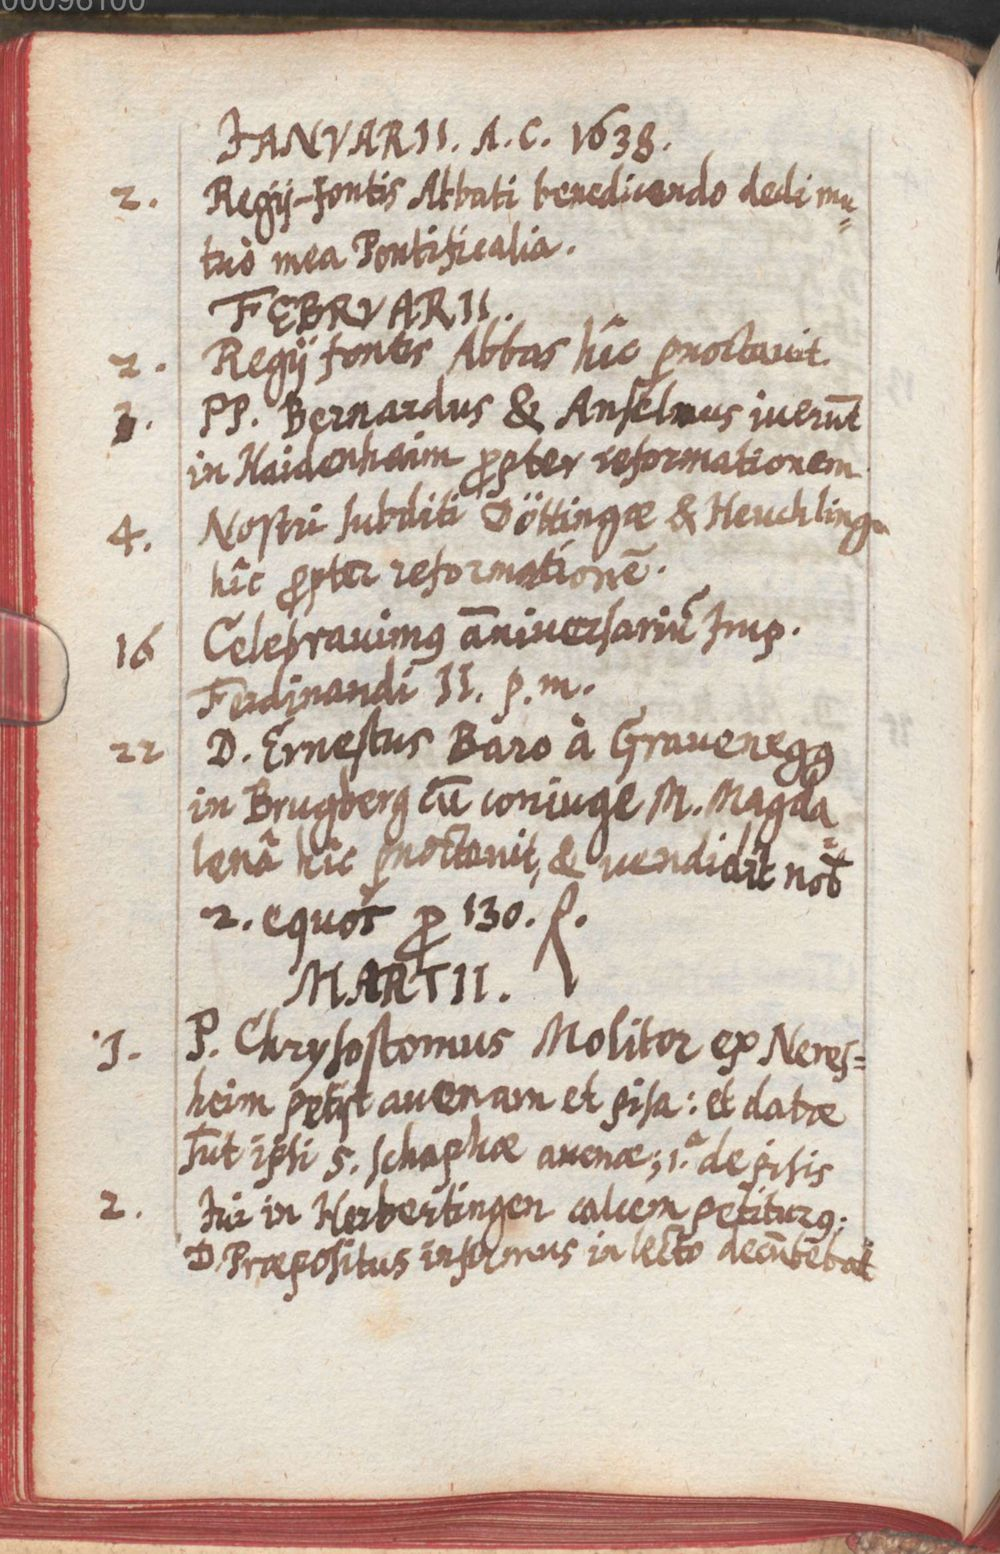 00096100
IANVARII. A. C. 1638.
2. Regij-fontis Abbati benedicendo dedi mu=
tuò mea Pontificalia.
FEBRVARII.
2. Regij fontis Abbas hîc pnoctauit.
3. PP. Bernardus & Anselmus iuerūt
in Haidenheim ꝓpter reformationem
4. Nostri subditi Döttingæ & Heuchlingæ
hîc ꝓpter reformationē.
16 Celebrauimꝰ āniuersariū Imp.
Ferdinandi II. p. m.
22 D. Ernestus Baro à Grauenegg
in Brugberg cū coniuge M. Magda=
lenâ hîc pnoctauit, & uendidit nob̄
2. equos ꝓ 130. f.
MARTII.
1. P. Chrysostomus Molitor ex Neres=
heim petijt auenam et pisa: et datæ
sūt ipsi 5. schaphæ auenæ; 1.ᵃ de pisis
2. Iui in Herbertingen calcem petiturꝰ.
D. Præpositus infirmus in lecto decūbebat